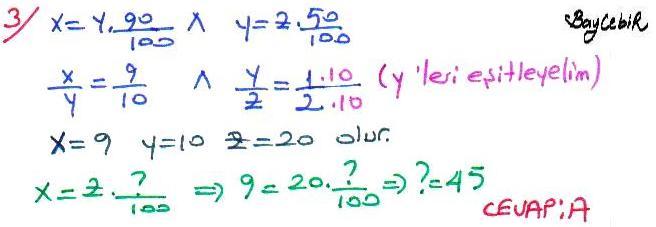 3/ x = y . 90/100 ∧ y = z . 50/100 BayCebiR
x/y = 9/10 ∧ y/z = 1.10/2.10 (y 'leri eşitleyelim)
x = 9 y = 10 z = 20 olur.
x = z . ?/100 ⇒ 9 = 20 . ?/100 ⇒ ? = 45
CEVAP: A